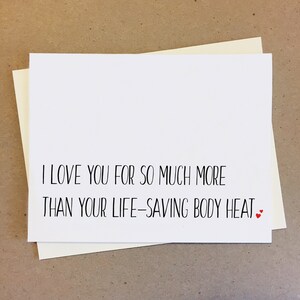 I LOVE YOU FOR SO MUCH MORE
THAN YOUR LIFE-SAVING BODY HEAT.